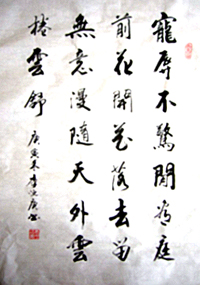 寵辱不驚閒看庭
前花開花落去留
無意漫隨天外雲
捲雲舒
庚寅年李